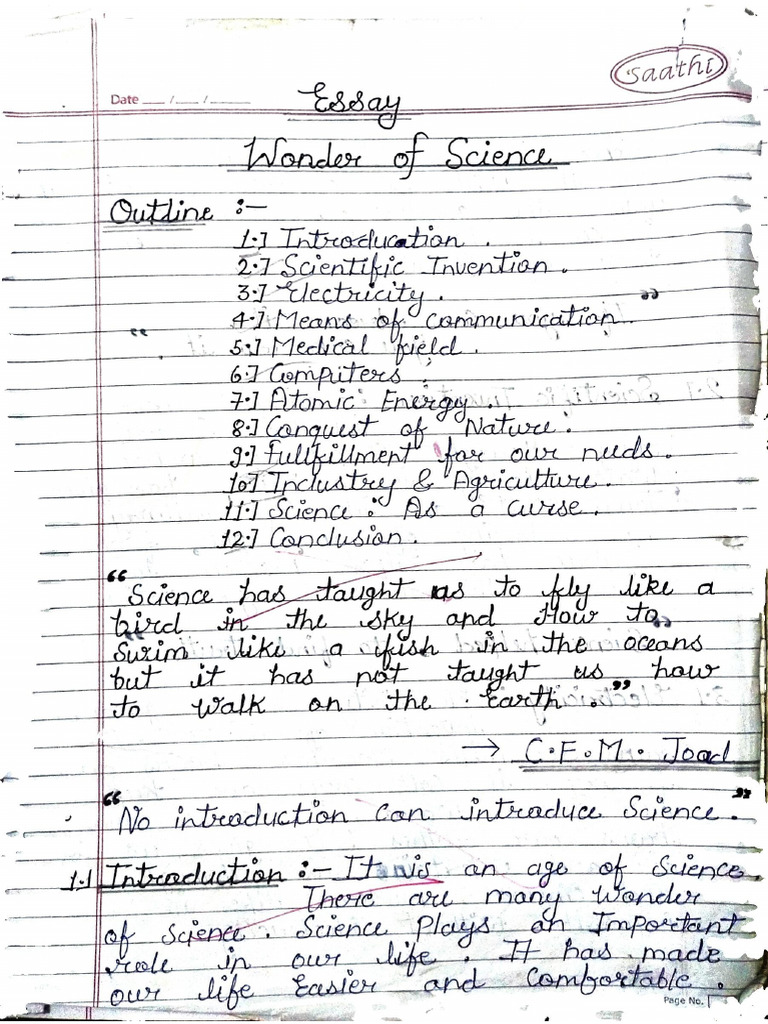 saathi
Date __/__/____
Essay
Wonder of Science
Outline :-
1.] Introducation .
2.] Scientific Invention .
3.] Electricity . "
" 4.] Means of communication
5.] Medical field .
6.] Computers .
7.] Atomic Energy .
8.] Conquest of Nature .
9.] Fullfillment for our needs .
10.] Industry & Agriculture .
11.] Science : As a curse .
12.] Conclusion .
"Science has taught us to fly like a
bird in the sky and How to
Swim like a fish in the oceans
but it has not taught us how
to walk on the Earth ."
→ C.F.M. Joad
"No introduction can introduce Science ."
1.] Introduction :- It is an age of Science.
There are many Wonder
of Science . Science Plays an Important
role in our life . It has made
our life Easier and Comfortable .
Page No.